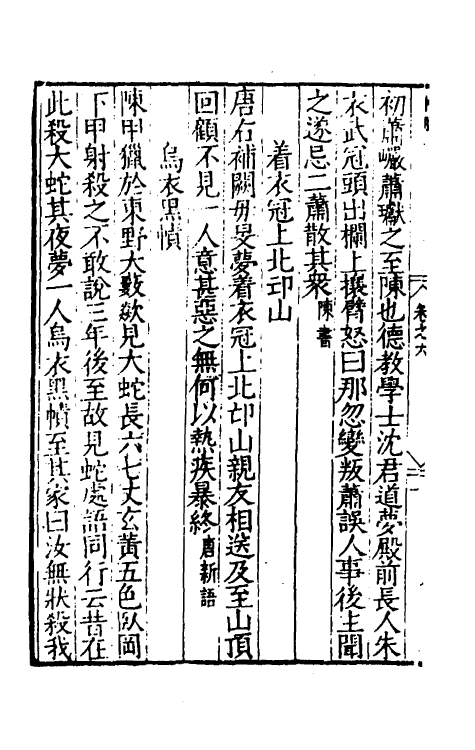 初蕭巖蕭瓛之至陳也德教學士沈君道夢殿前長人朱
衣武冠頭出欄上攘臂怒曰那忽變叛蕭誤人事後主聞
之遂忌二蕭散其衆陳書
着衣冠上北邙山
唐右補闕毋旻夢着衣冠上北邙山親友相送及至山頂
回顧不見一人意甚惡之無何以熱疾暴終唐新語
烏衣黑幘
陳甲獵於東野大藪欻見大蛇長六七丈玄黃五色臥岡
下甲射殺之不敢說三年後至故見蛇處語同行云昔在
此殺大蛇其夜夢一人烏衣黑幘至其家曰汝無狀殺我
卷之六